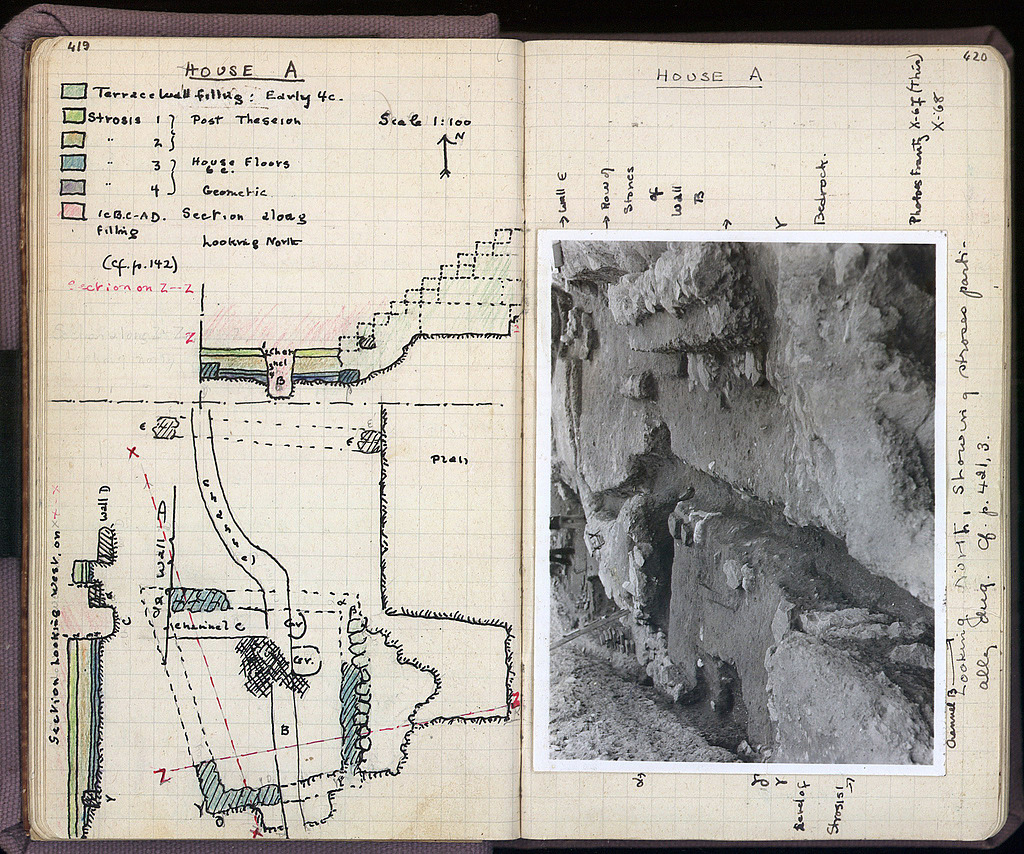 419
HOUSE A
Terrace wall filling: Early 4c.
Strosis 1 } Post Theseion
" 2 }
" 3 } House Floors 6c.
" 4 } Geometric
1c B.C-A.D. Section along
filling
Looking North
(cf. p. 142)
Section on Z--Z
Scale 1:100
N
Z
Channel
B
E
E
Plan
X
Channel
Wall D
Wall D
Section looking west, on X-X
C
channel C
Gr.
Gr.
B
Z
Z
Y
X
420
HOUSE A
→ Wall E
→ Row of
Stones
of
Wall
B
→
γ
Bedrock.
X-67 (This)
X-68
Looking North, showing stroses parti-
ally dug cf. p. 421, 3.
Channel B
γ
Level of
Strosis 1